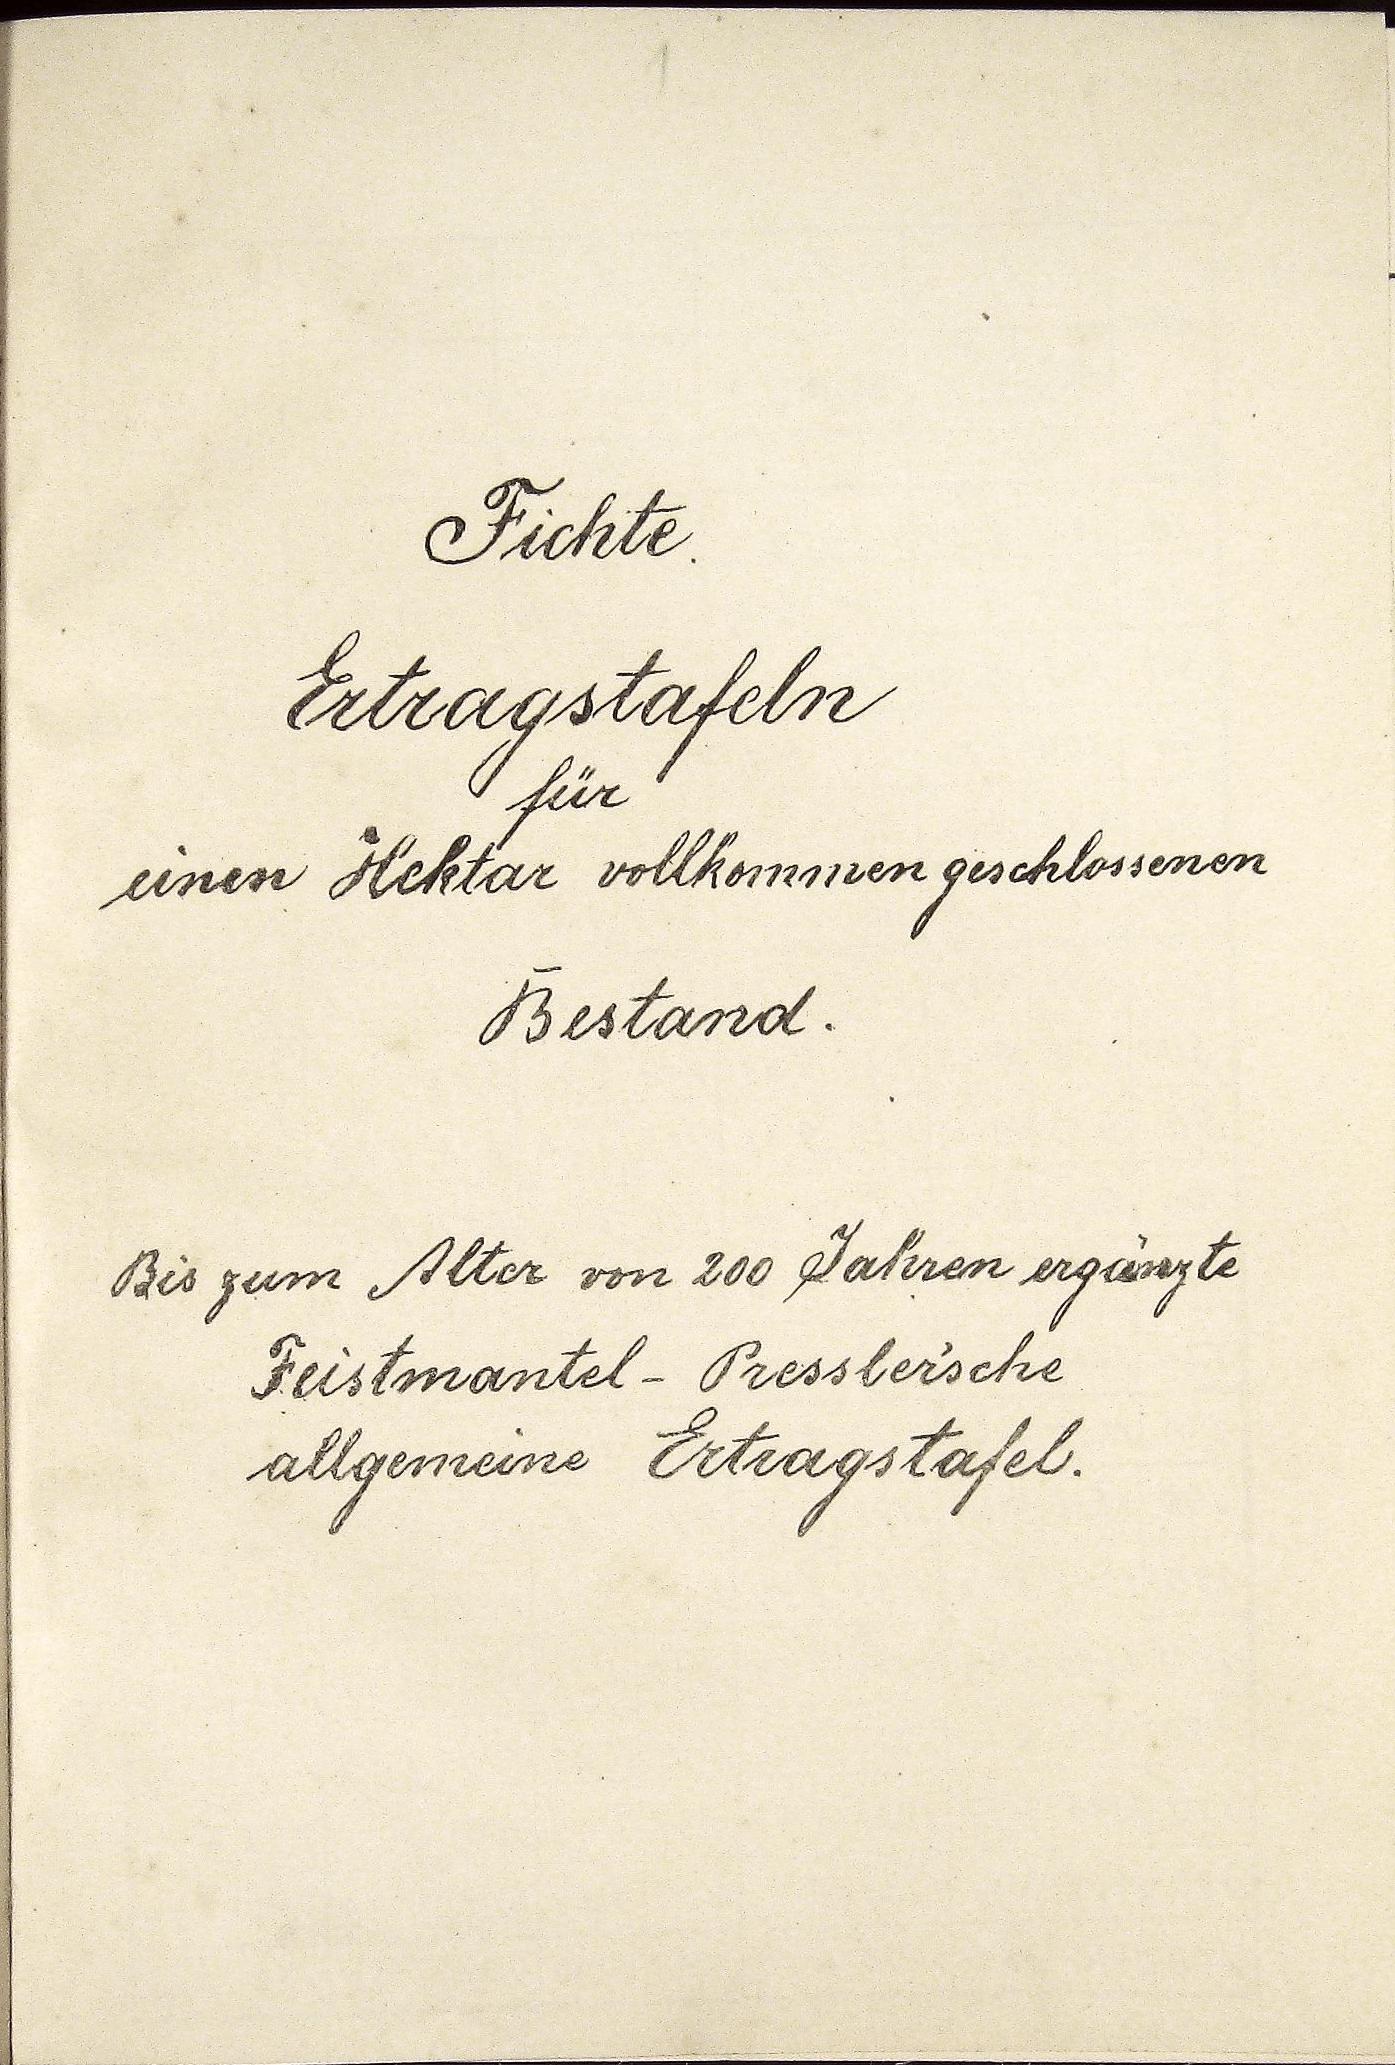 Fichte.
Ertragstafeln
für
einen Hektar vollkommen geschlossenen
Bestand.
Bis zum Alter von 200 Jahren ergänzte
Feistmantel - Pressler'sche
allgemeine Ertragstafel.